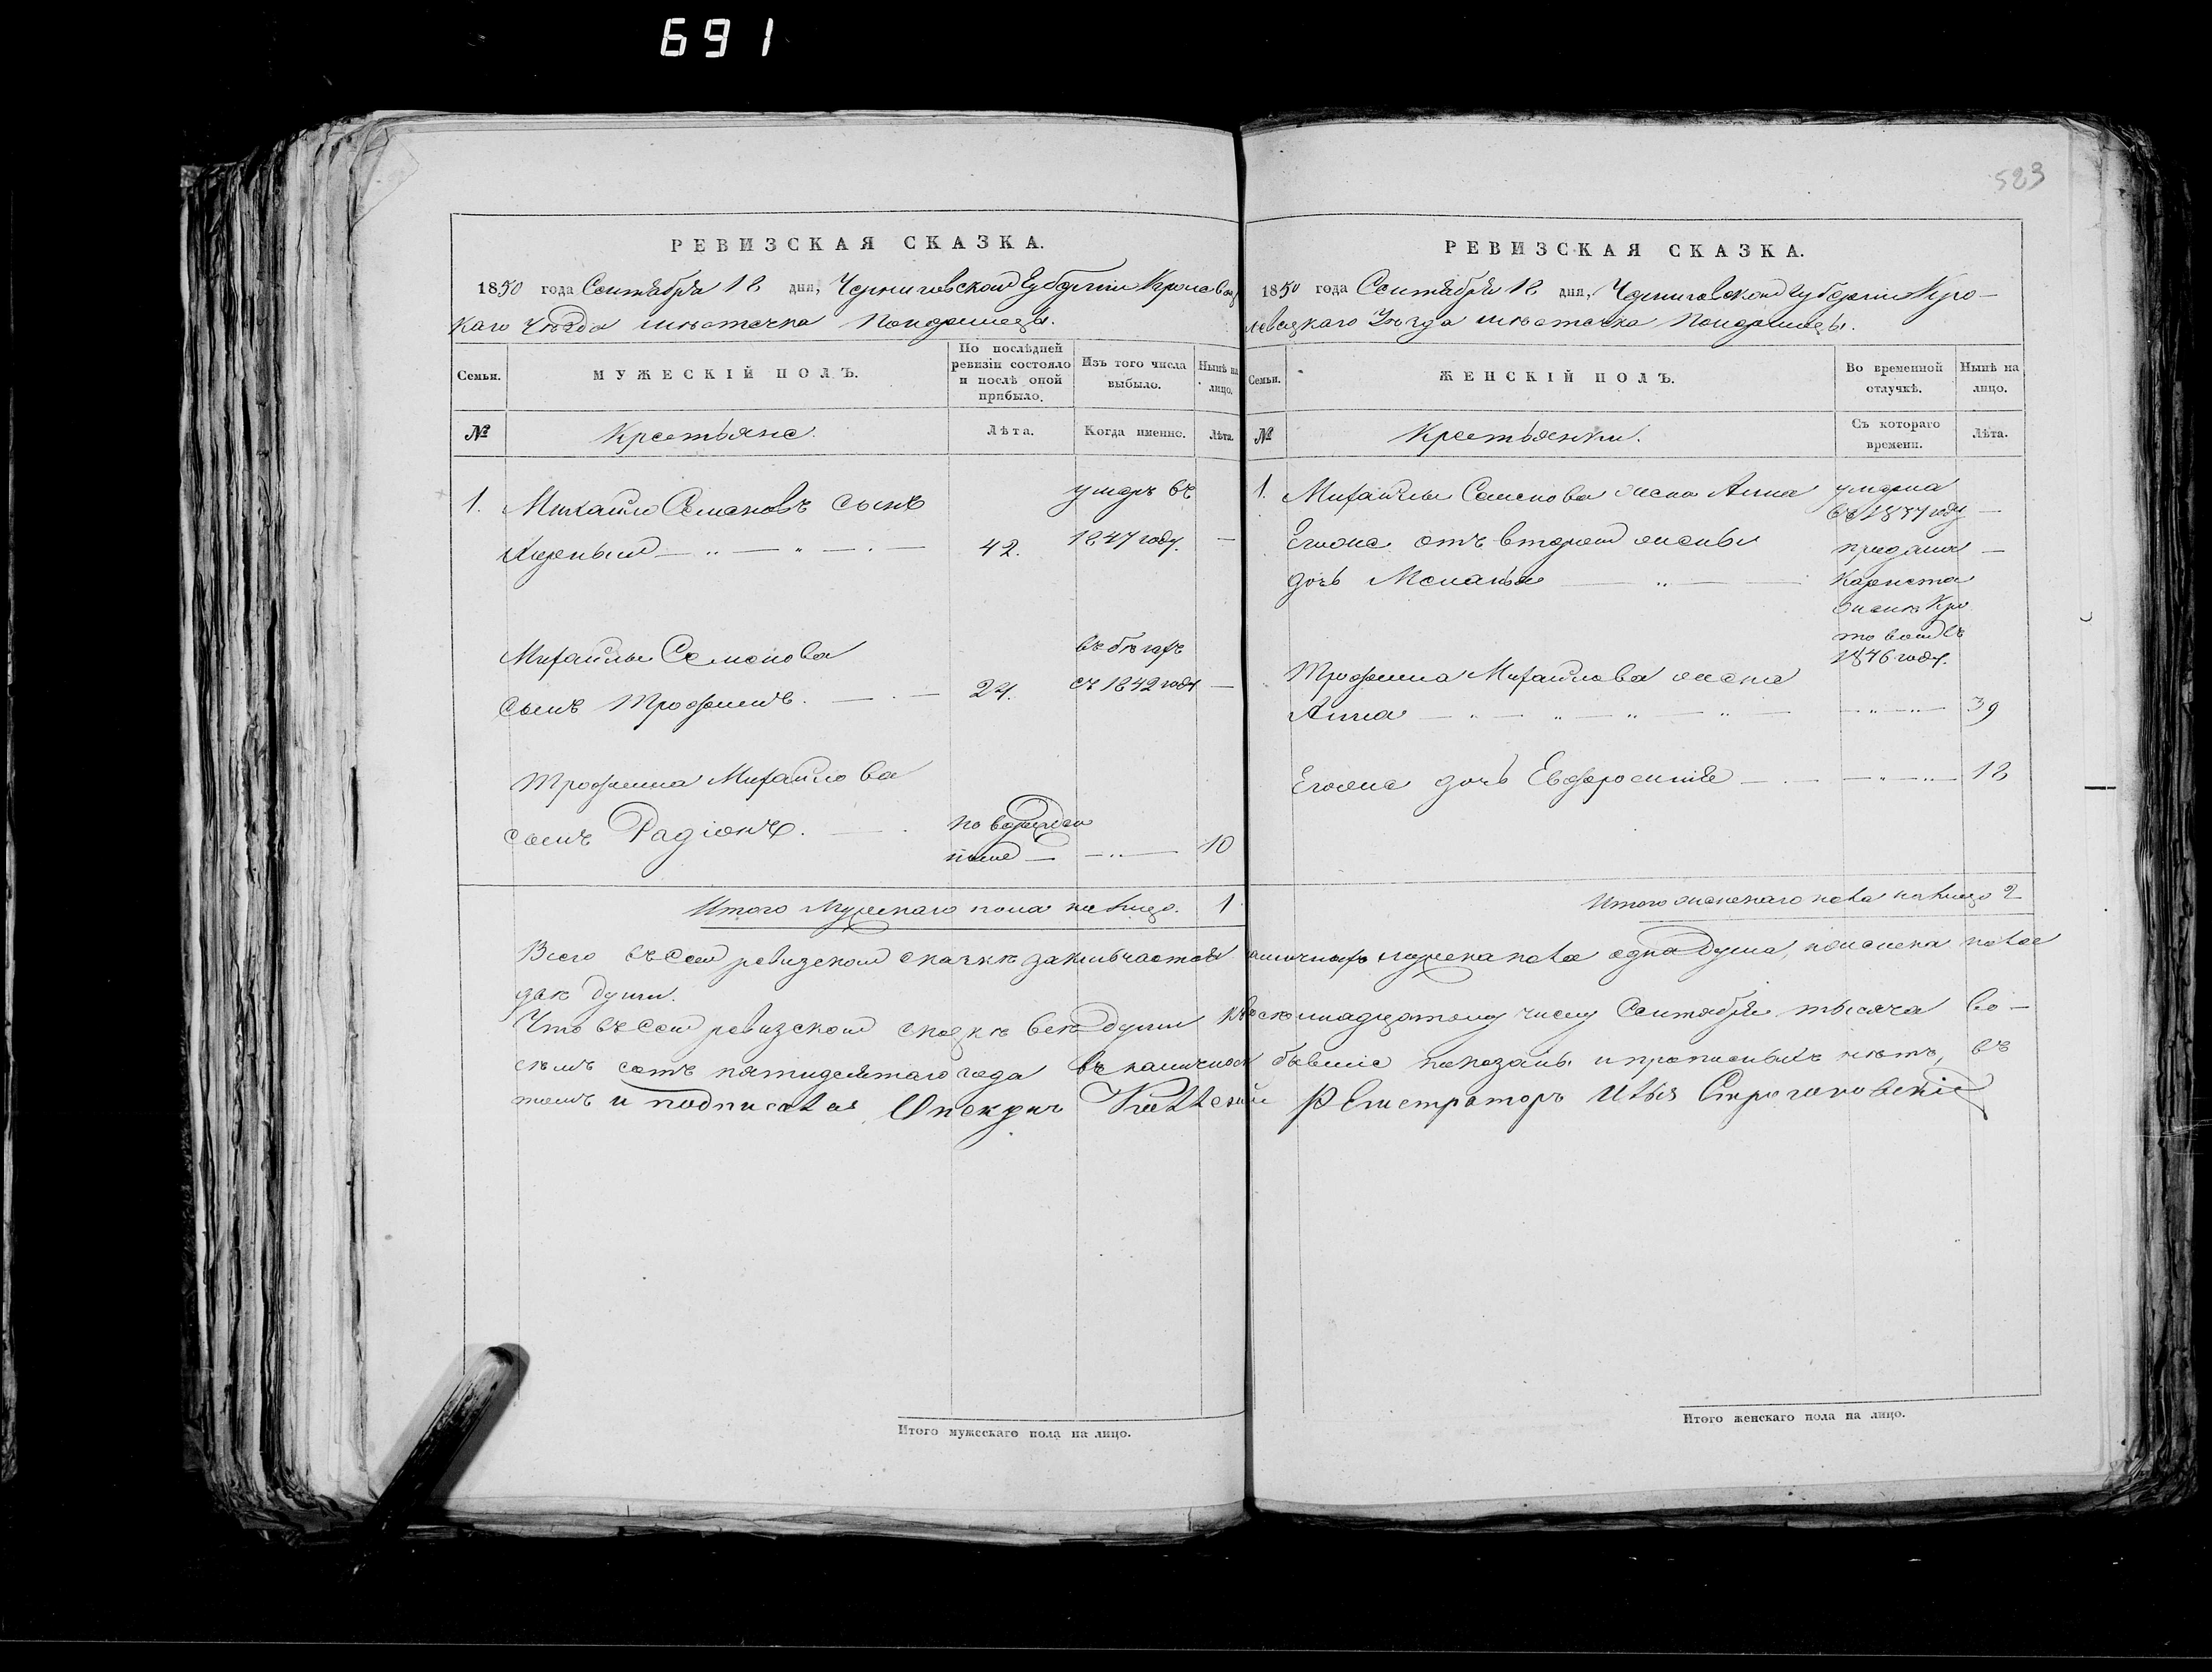 691
523
РЕВИЗСКАЯ СКАЗКА.
1850 года Сентября 18 дня, Черниговской Губерніи Кролевец
каго Уѣзда мѣстечка Понорницы.
Семьи.
МУЖЕСКІЙ ПОЛЪ.
По послѣдней ревизіи состояло и послѣ оной прибыло.
Изъ того числа выбыло.
Нынѣ на лицо.
№
Крестьяне.
Лѣта.
Когда именно.
Лѣта.
1. Михайло Семеновъ сынъ
умеръ въ
42. 1847 году. —
Михайлы Семенова
въ бѣгахъ
сынъ Трофимъ. — 24. съ 1842 году —
Трофима Михайлова
сынъ Радіонъ. — по ревизіи
— 10
Итого мужескаго пола на лицо. 1
РЕВИЗСКАЯ СКАЗКА.
1850 года Сентября 18 дня, Черниговской Губерніи Кро-
левецкаго Уѣзда мѣстечка Понорницы.
Семьи.
ЖЕНСКІЙ ПОЛЪ.
Во временной отлучкѣ.
Нынѣ на лицо.
№
Крестьянки.
Съ котораго времени.
Лѣта.
1. Михайлы Семенова жена Анна умерла
году —
Егоже отъ второй жены
дочь Меланья —
1846 году.
Трофима Михайлова жена
Анна — 39
Егоже дочь Евфросинія — 18
Итого женскаго пола на лицо 2
Всего въ сей ревизской сказкѣ заключается наличныхъ мужеска пола одна душа, женска пола
двѣ души.
Что въ сей ревизской сказкѣ всѣ души къ осьмнадцатому числу Сентября тысяча во-
семъ сотъ пятидесятаго года въ наличности бывшіе показаны и прописныхъ нѣтъ, въ
томъ и подписался Опекунъ Регистраторъ Илья Строгановскій
Итого мужескаго пола на лицо.
Итого женскаго пола на лицо.